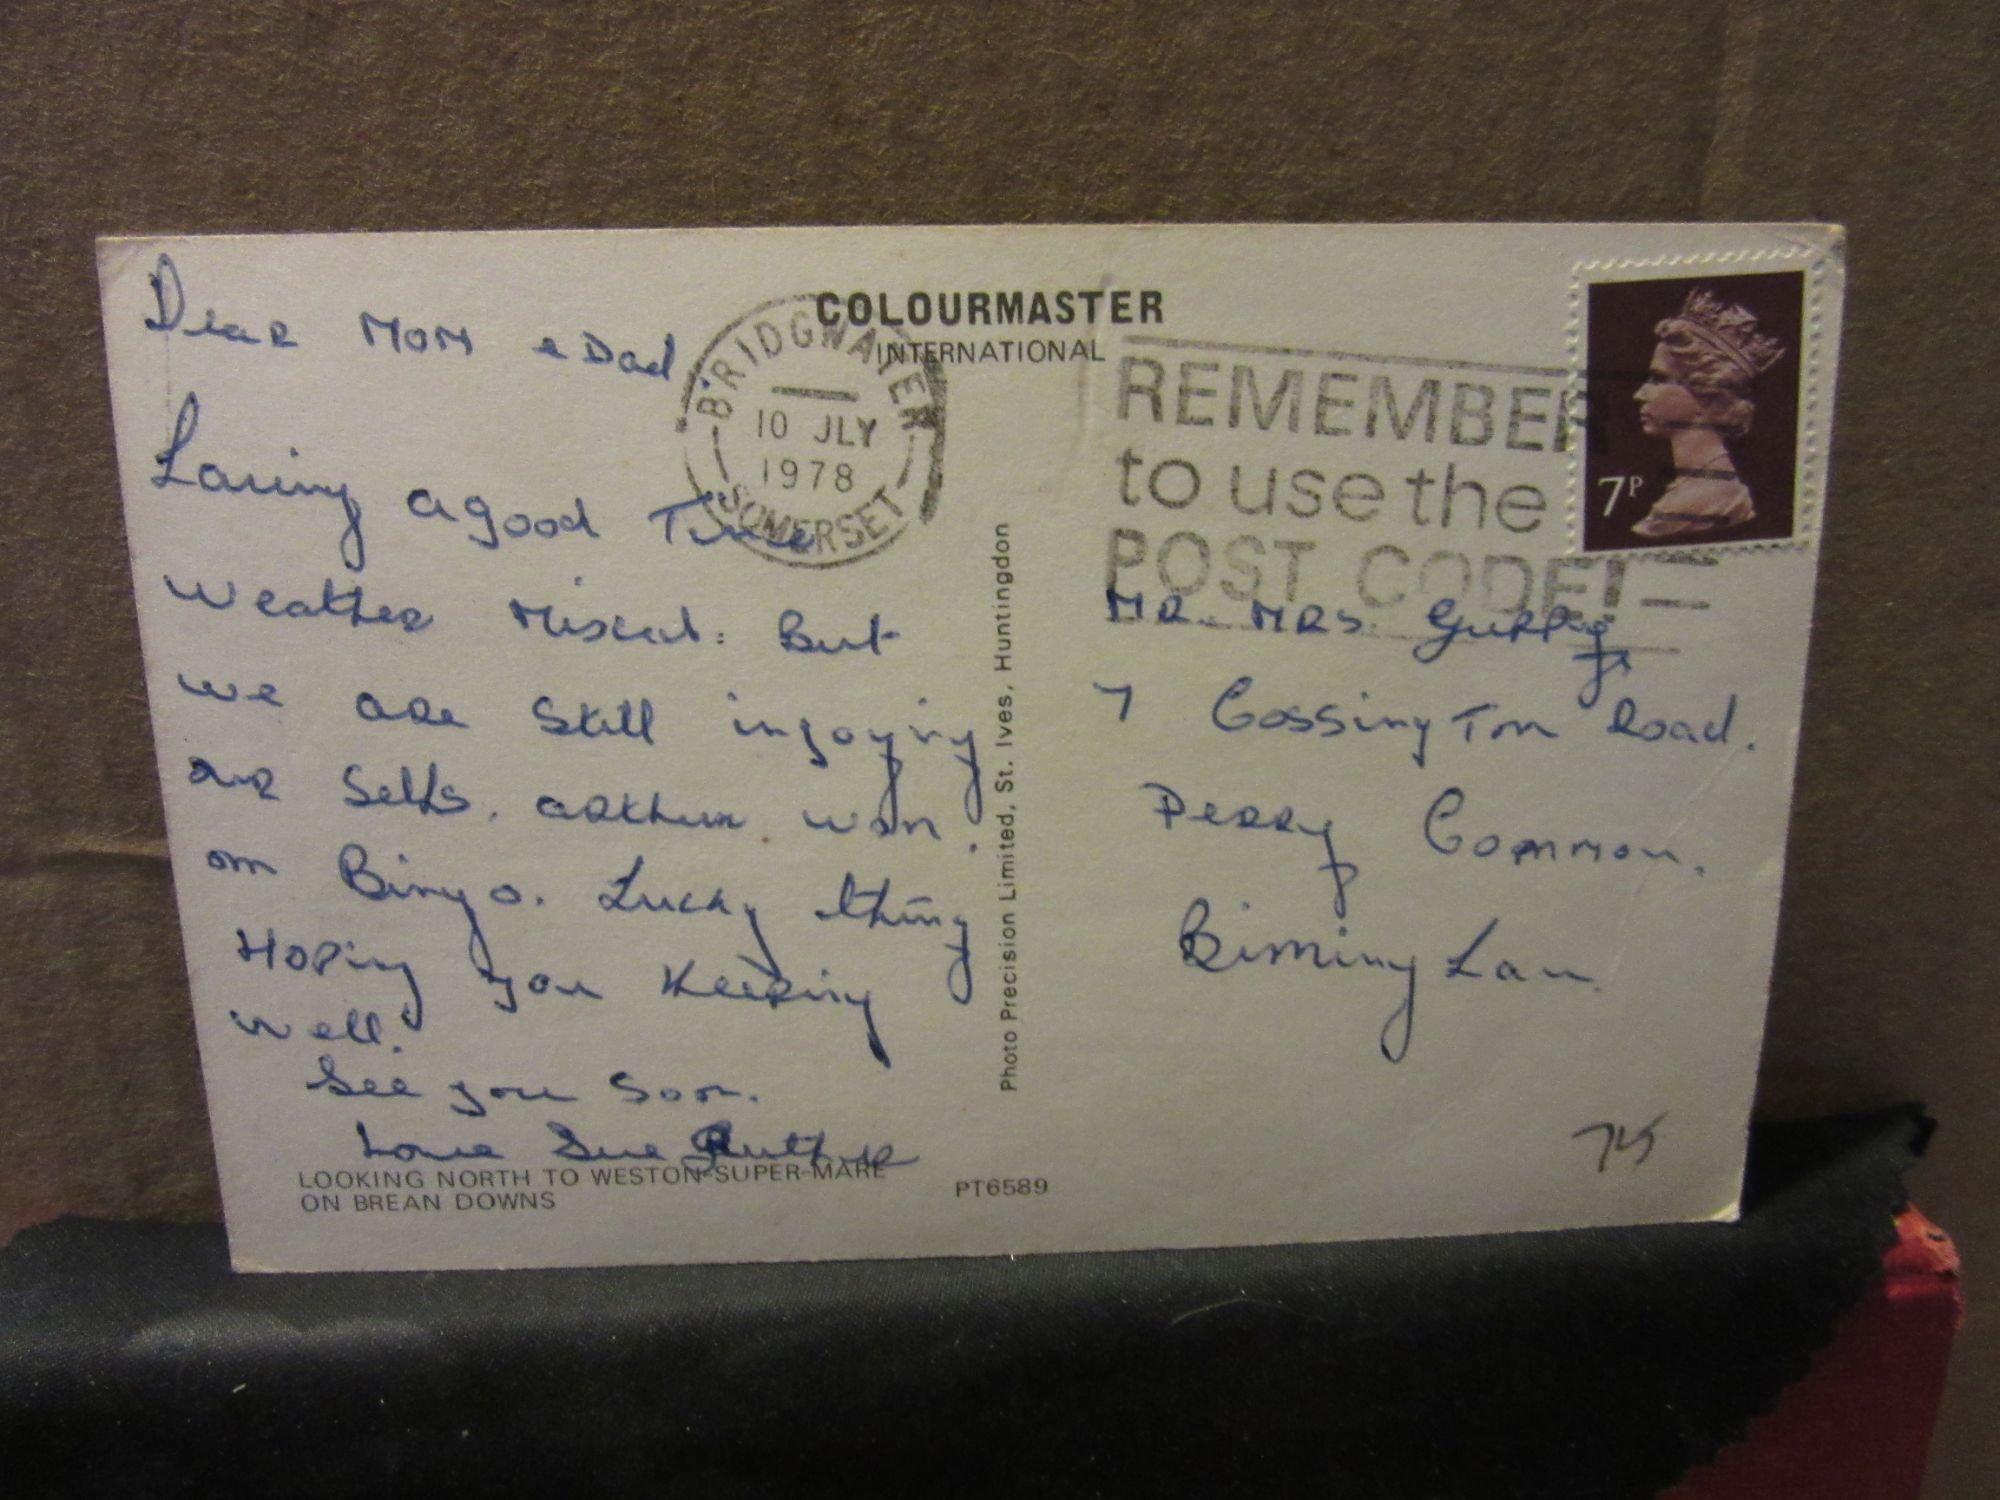 Dear MOM & Dad
Having a good Time
Weather Mixed: But
we are Still injoying
our Selfs. arthur won
on Bingo. Lucky thing
Hoping you Keeping
well.
See you Soon.
Love Sue
LOOKING NORTH TO WESTON-SUPER-MARE
ON BREAN DOWNS
PT6589
COLOURMASTER
INTERNATIONAL
BRIDGWATER
10 JLY
1978
SOMERSET
Photo Precision Limited, St. Ives, Huntingdon
REMEMBER
to use the
POST CODE!
7P
MR. MRS. Guppy
7 Cossington Road.
Perry Common.
Birmingham